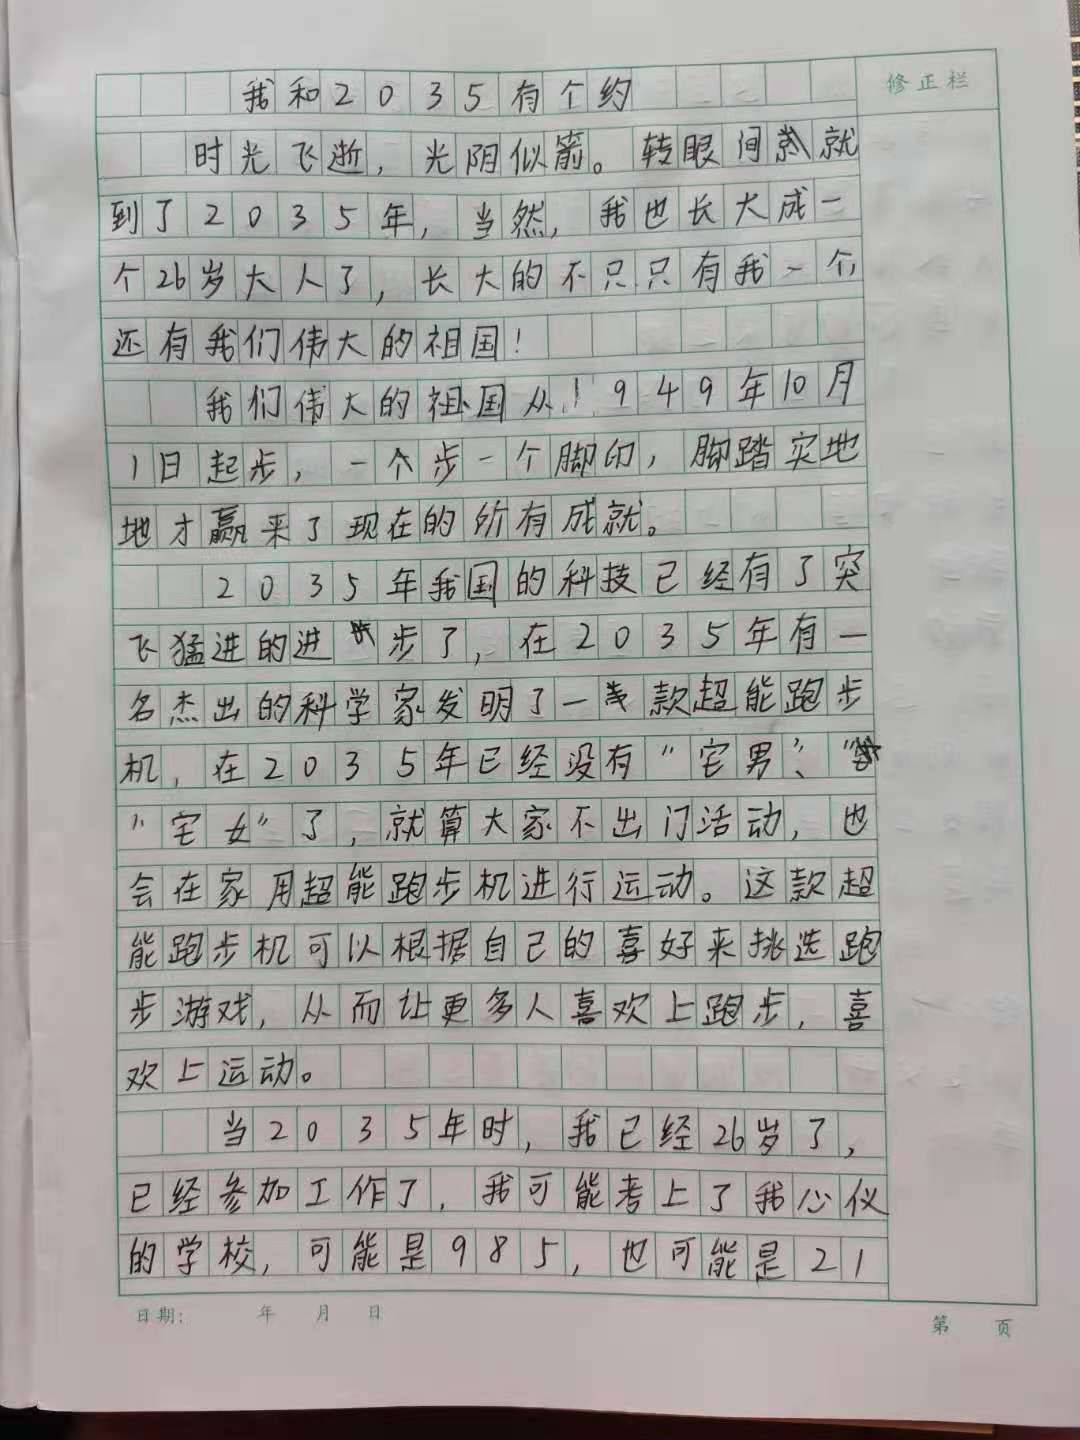 我和2035有个约
修正栏
时光飞逝，光阴似箭。转眼间就
到了2035年，当然，我也长大成一
个26岁大人了，长大的不只只有我一个，
还有我们伟大的祖国！
我们伟大的祖国从1949年10月
1日起步，一个步一个脚印，脚踏实地
地才赢来了现在的所有成就。
2035年我国的科技已经有了突
飞猛进的进步了，在2035年有一
名杰出的科学家发明了一款超能跑步
机，在2035年已经没有“宅男”、
“宅女”了，就算大家不出门活动，也
会在家用超能跑步机进行运动。这款超
能跑步机可以根据自己的喜好来挑选跑
步游戏，从而让更多人喜欢上跑步，喜
欢上运动。
当2035年时，我已经26岁了，
已经参加工作了，我可能考上了我心仪
的学校，可能是985，也可能是21
日期： 年 月 日
第 页